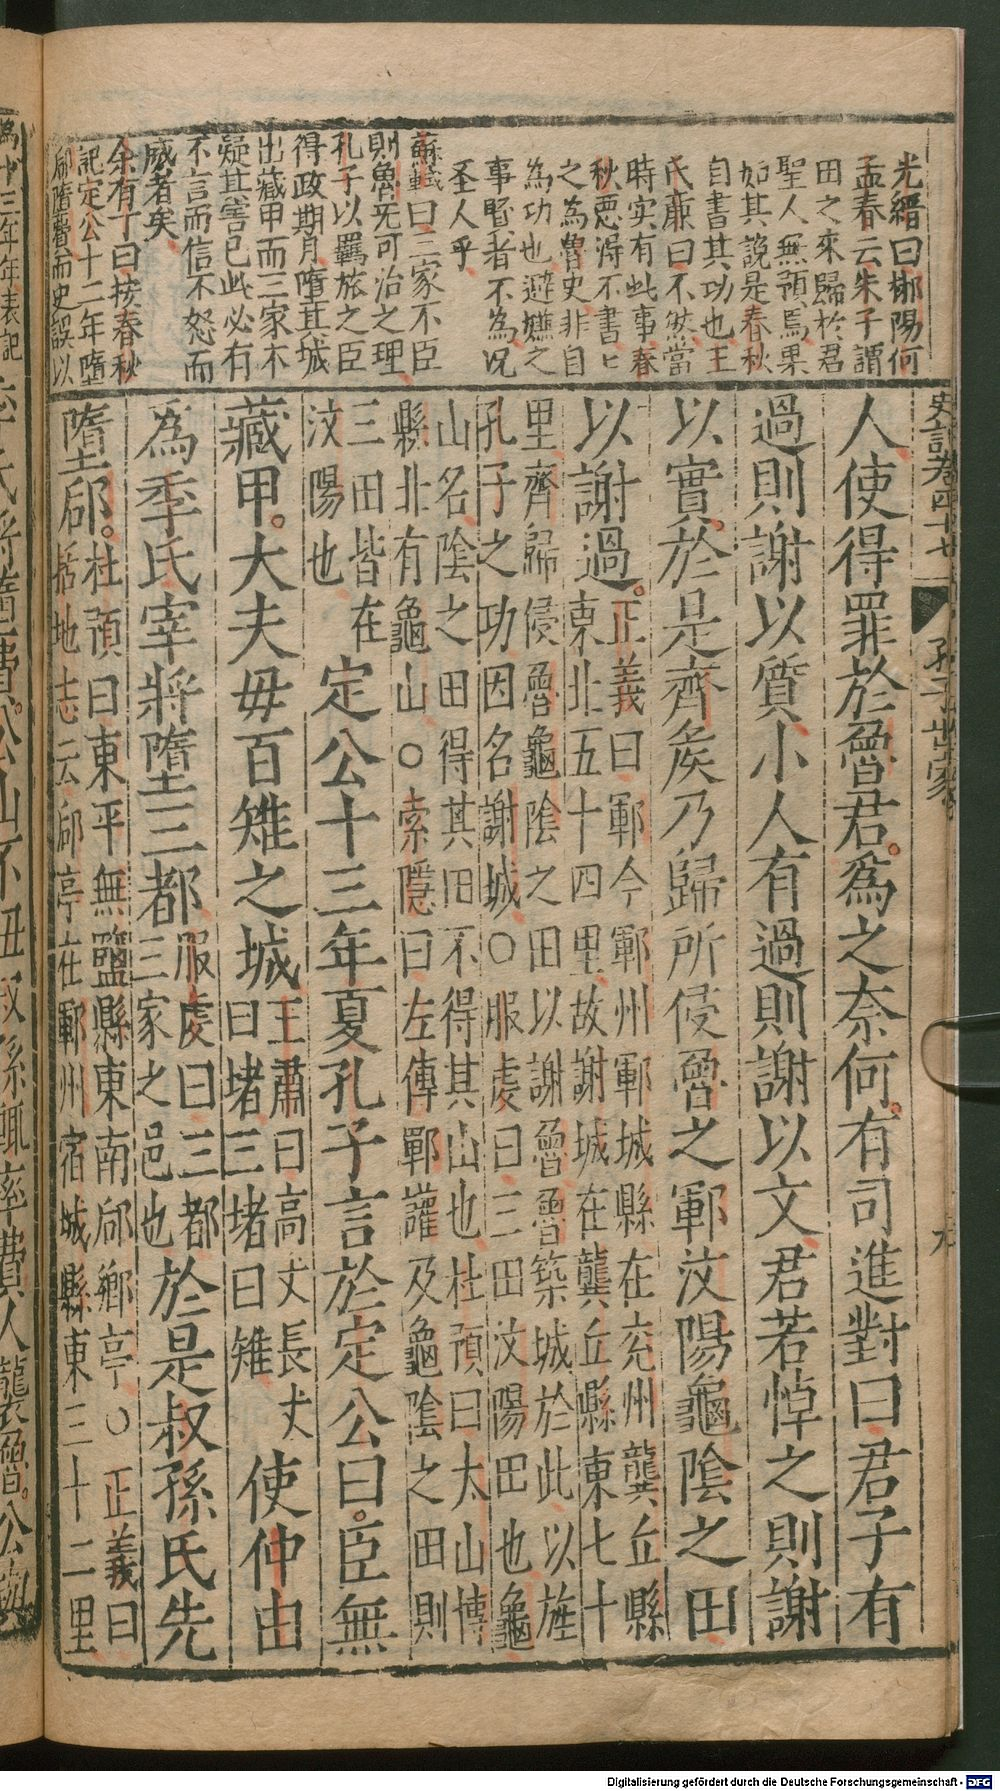 光縉曰郴陽何
孟春云朱子謂
田之來歸於君
聖人無預焉果
如其說是春秋
自書其功也王
氏廉曰不然當
時實有此事春
秋惡得不書
之為魯史非自
為功也避嫌之
事賢者不為況
圣人乎
蘇軾曰三家不臣
則魯无可治之理
孔子以羈旅之臣
得政期月墮其城
出藏甲而三家不
疑其害已此必有
不言而信不怒而
威者矣
余有丁曰按春秋
記定公十二年墮
郈墮費而史誤以
史記卷四十七
孔子世家
人使得罪於魯君。為之奈何。有司進對曰君子有
過則謝以質小人有過則謝以文君若悼之則謝
以實於是齊矦乃歸所侵魯之鄆汶陽龜陰之田
以謝過。正義曰鄆今鄆州鄆城縣在兖州龔丘縣
東北五十四里故謝城在龔丘縣東七十
里齊歸侵魯龜陰之田以謝魯魯築城於此以旌
孔子之功因名謝城○服虔曰三田汶陽田也龜
山名陰之田得其田不得其山也杜預曰太山博
縣北有龜山○索隱曰左傳鄆讙及龜陰之田則
三田皆在
汶陽也
定公十三年夏孔子言於定公曰。臣無
藏甲。大夫毋百雉之城王肅曰高丈長丈
曰堵三堵曰雉
使仲由
為季氏宰將墮三都服虔曰三都
三家之邑也
於是叔孫氏先
墮郈。杜預曰東平無鹽縣東南郈鄉亭○正義曰
括地志云郈亭在鄆州宿城縣東三十二里
為十三年年表記
季氏將墮費。公山不狃叔孫輒率費人襲魯。公
Digitalisierung gefördert durch die Deutsche Forschungsgemeinschaft - DFG